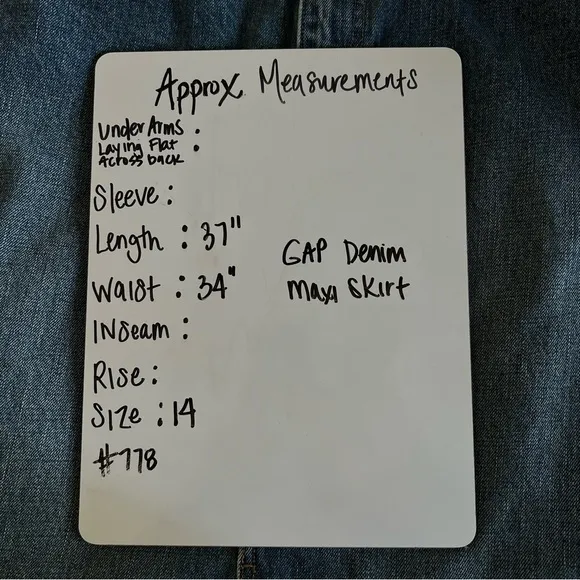 Approx Measurements
Under Arms :
Laying Flat :
Across back
Sleeve :
Length : 37"
Waist : 34"
GAP Denim
Maxi Skirt
Inseam :
Rise :
Size : 14
#778